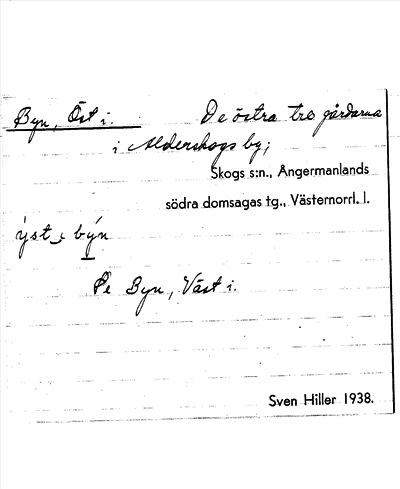 Byn, Öst i. De östra tre gårdarna
i Alderskogs by;
Skogs s:n., Ångermanlands
södra domsagas tg., Västernorrl. l.
ýst i býn
Se Byn, Väst i.
Sven Hiller 1938.